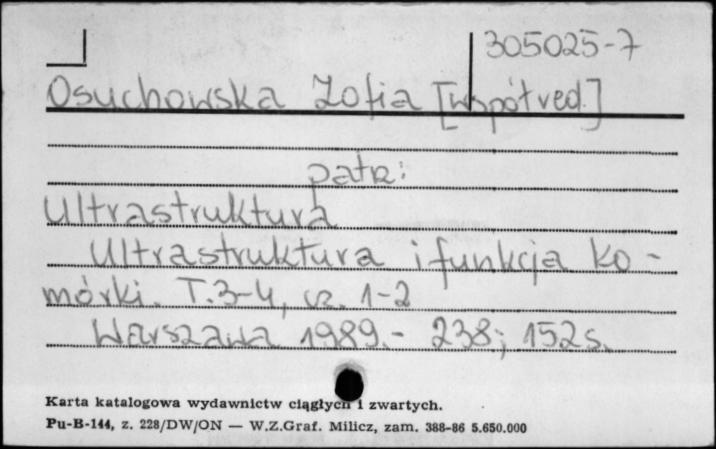 305025-7
Osuchowska Zofia [współred.]
patrz:
Ultrastruktura
Ultrastruktura i funkcja ko-
mórki. T.3-4, cz. 1-2
Warszawa 1989.- 238; 152 s.
Karta katalogowa wydawnictw ciągłych i zwartych.
Pu-B-144, z. 228/DW/ON — W.Z.Graf. Milicz, zam. 388-86 5.650.000